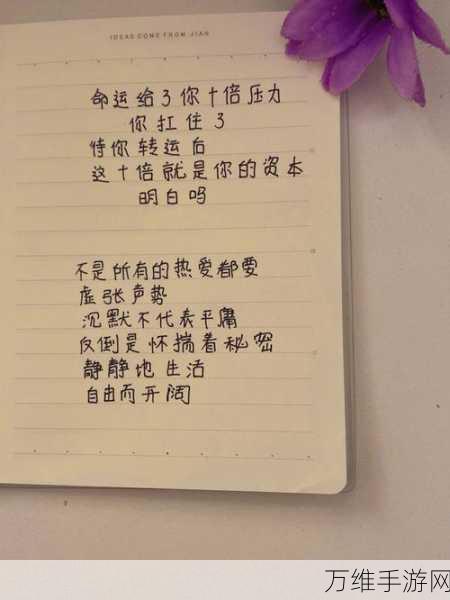 IDEAS COME FROM JIAN
命运给了你十倍压力
你扛住了
待你转运后
这十倍就是你的资本
明白吗
不是所有的热爱都要
虚张声势
沉默不代表平庸
反倒是怀揣着秘密
静静地生活
自由而开阔
万维手游网